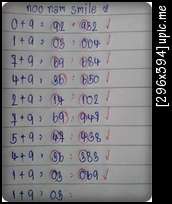 noo nam smile
0+9 = 92 - 952
1+9 = 03 - 004
7+9 = 69 - 684
4+9 = 36 - 650
2+9 = 14 - 102
7+9 = 69 - 949
5+9 = 47 - 438
4+9 = 36 - 383
1+9 = 03 - 069
1+9 = 03 =
[296x394] upic.me